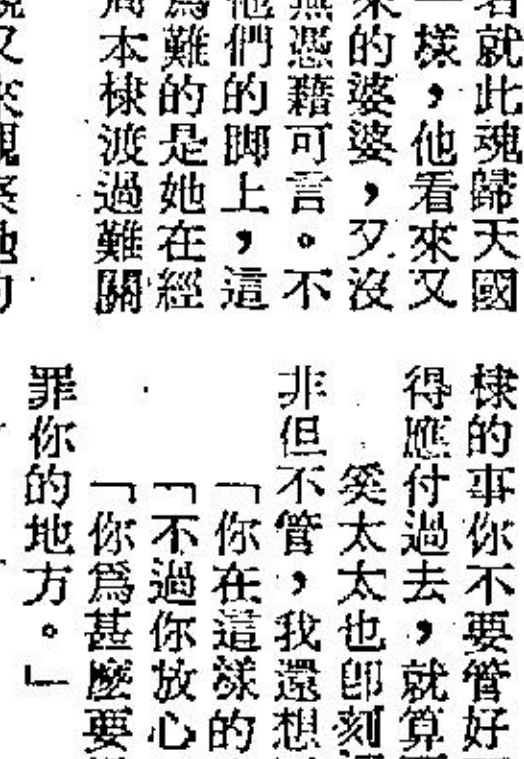 若就此魂歸天國
一樣，他看來又
來的婆婆，又沒
無憑藉可言。不
他們的脚上，這
爲難的是她在經
周本棣渡過難關
說又來觀察她的
棣的事你不要管好
得應付過去，就算
奚太太也卽刻
非但不管，我還想
「你在這樣的
「不過你放心
「你爲甚麼要
罪你的地方。」